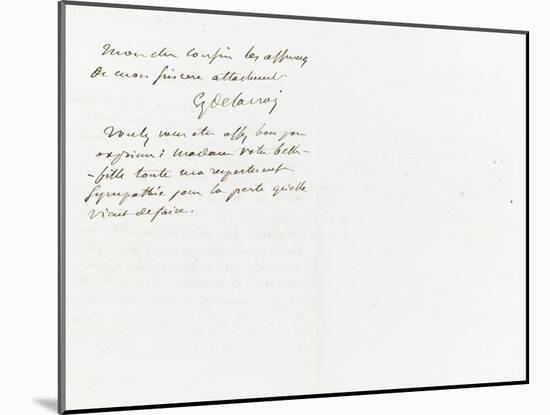 Mon cher cousin les assurances
de mon sincere attachement
EgDelacroix
Voulez vous être assez bon pour
exprimer à Madame votre belle-
-fille toute ma respectueuse
Sympathie pour la perte qu'elle
vient de faire.